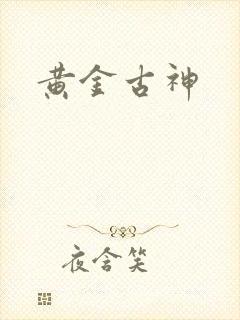 黄金古神
夜含笑